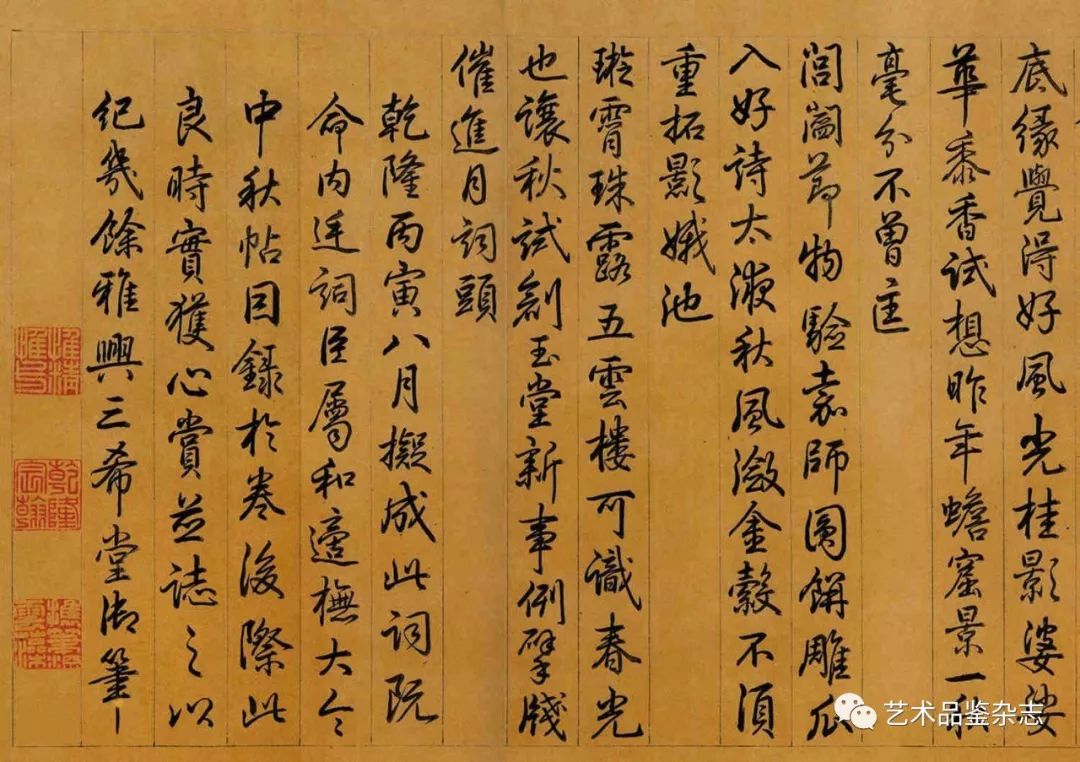 底緣覺得好風光桂影婆娑
華黍香試想昨年蟾窟景一秋
毫分不曾匡
閶闔節物驗嘉師圓餅雕瓜
入好詩太液秋風瀲金縠不須
重拓影娥池
璇霄珠露五雲樓可識春光
也讓秋試創玉堂新事例擘牋
催進月詞頭
乾隆丙寅八月擬成此詞既
命內廷詞臣屬和適橅大令
中秋帖因錄於卷後際此
良時實獲心賞並誌之以
紀幾餘雅興三希堂御筆
乾隆宸翰
艺术品鉴杂志